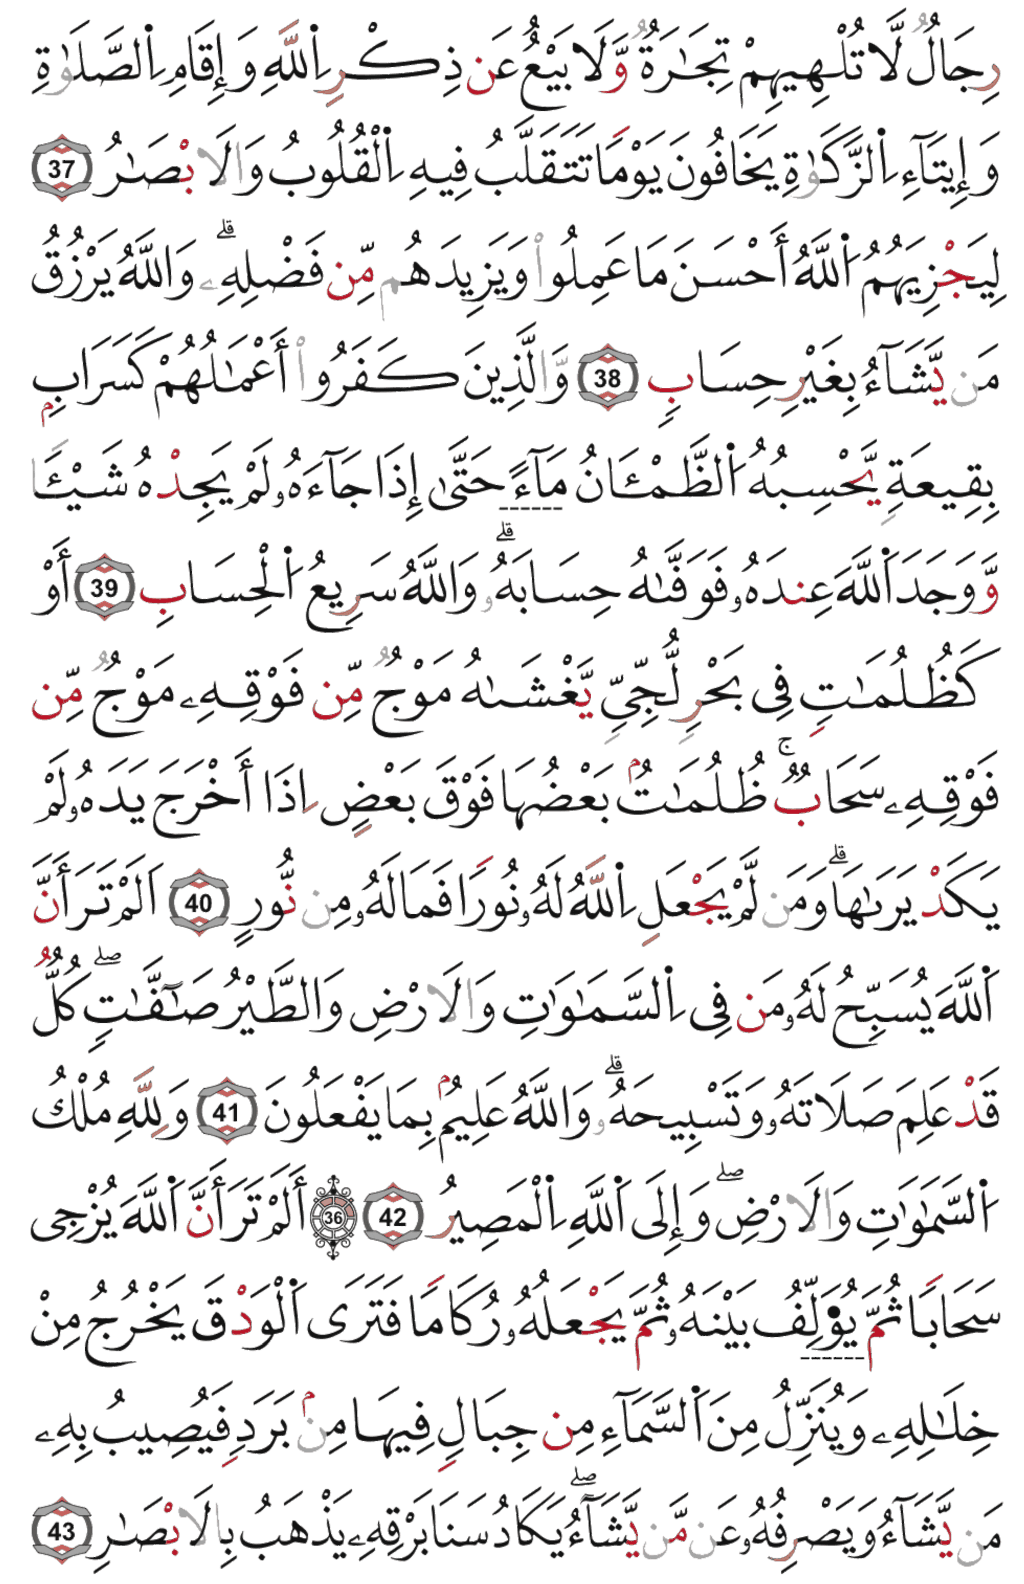 رِجَالٌ لَّا تُلْهِيهِمْ تِجَٰرَةٌ وَّلَا بَيْعٌ عَن ذِكْرِ اِ۬للَّهِ وَإِقَامِ اِ۬لصَّلَوٰةِ
وَإِيتَآءِ اِ۬لزَّكَوٰةِ يَخَافُونَ يَوْمًا تَتَقَلَّبُ فِيهِ اِ۬لْقُلُوبُ وَالَابْصَٰرُ 37
لِيَجْزِيَهُمُ اُ۬للَّهُ أَحْسَنَ مَا عَمِلُواْ وَيَزِيدَهُم مِّن فَضْلِهِۦۗ وَاللَّهُ يَرْزُقُ
مَن يَّشَآءُ بِغَيْرِ حِسَابٖ 38 وَّالَّذِينَ كَفَرُواْ أَعْمَٰلُهُمْ كَسَرَابِۢ
بِقِيعَةٖ يَّحْسِبُهُ اُ۬لظَّمْـَٔانُ مَآءً حَتَّىٰ إِذَا جَآءَهُۥ لَمْ يَجِدْهُ شَيْـًٔا
وَّوَجَدَ اَ۬للَّهَ عِندَهُۥ فَوَفَّىٰهُ حِسَابَهُۥۗ وَاللَّهُ سَرِيعُ اُ۬لْحِسَابِ 39 أَوْ
كَظُلُمَٰتٖ فِى بَحْرٖ لُّجِّىّٖ يَّغْشَىٰهُ مَوْجٌ مِّن فَوْقِهِۦ مَوْجٌ مِّن
فَوْقِهِۦ سَحَابٌۚ ظُلُمَٰتُۢ بَعْضُهَا فَوْقَ بَعْضٍ اِذَا أَخْرَجَ يَدَهُۥ لَمْ
يَكَدْ يَرَىٰهَاۗ وَمَن لَّمْ يَجْعَلِ اِ۬للَّهُ لَهُۥ نُورًا فَمَا لَهُۥ مِن نُّورٍ 40 اَلَمْ تَرَ أَنَّ
اَ۬للَّهَ يُسَبِّحُ لَهُۥ مَن فِى اِ۬لسَّمَٰوَٰتِ وَالَارْضِ وَالطَّيْرُ صَٰٓفَّٰتٖۖ كُلٌّ
قَدْ عَلِمَ صَلَاتَهُۥ وَتَسْبِيحَهُۥۗ وَاللَّهُ عَلِيمُۢ بِمَا يَفْعَلُونَ 41 وَلِلَّهِ مُلْكُ
اُ۬لسَّمَٰوَٰتِ وَالَارْضِۖ وَإِلَى اَ۬للَّهِ اِ۬لْمَصِيرُ 42 36 أَلَمْ تَرَ أَنَّ اَ۬للَّهَ يُزْجِى
سَحَابًا ثُمَّ يُؤَلِّفُ بَيْنَهُۥ ثُمَّ يَجْعَلُهُۥ رُكَامًا فَتَرَى اَ۬لْوَدْقَ يَخْرُجُ مِنْ
خِلَٰلِهِۦ وَيُنَزِّلُ مِنَ اَ۬لسَّمَآءِ مِن جِبَالٖ فِيهَا مِنۢ بَرَدٖ فَيُصِيبُ بِهِۦ
مَن يَّشَآءُ وَيَصْرِفُهُۥ عَن مَّن يَّشَآءُۖ يَكَادُ سَنَا بَرْقِهِۦ يَذْهَبُ بِالَابْصَٰرِ 43